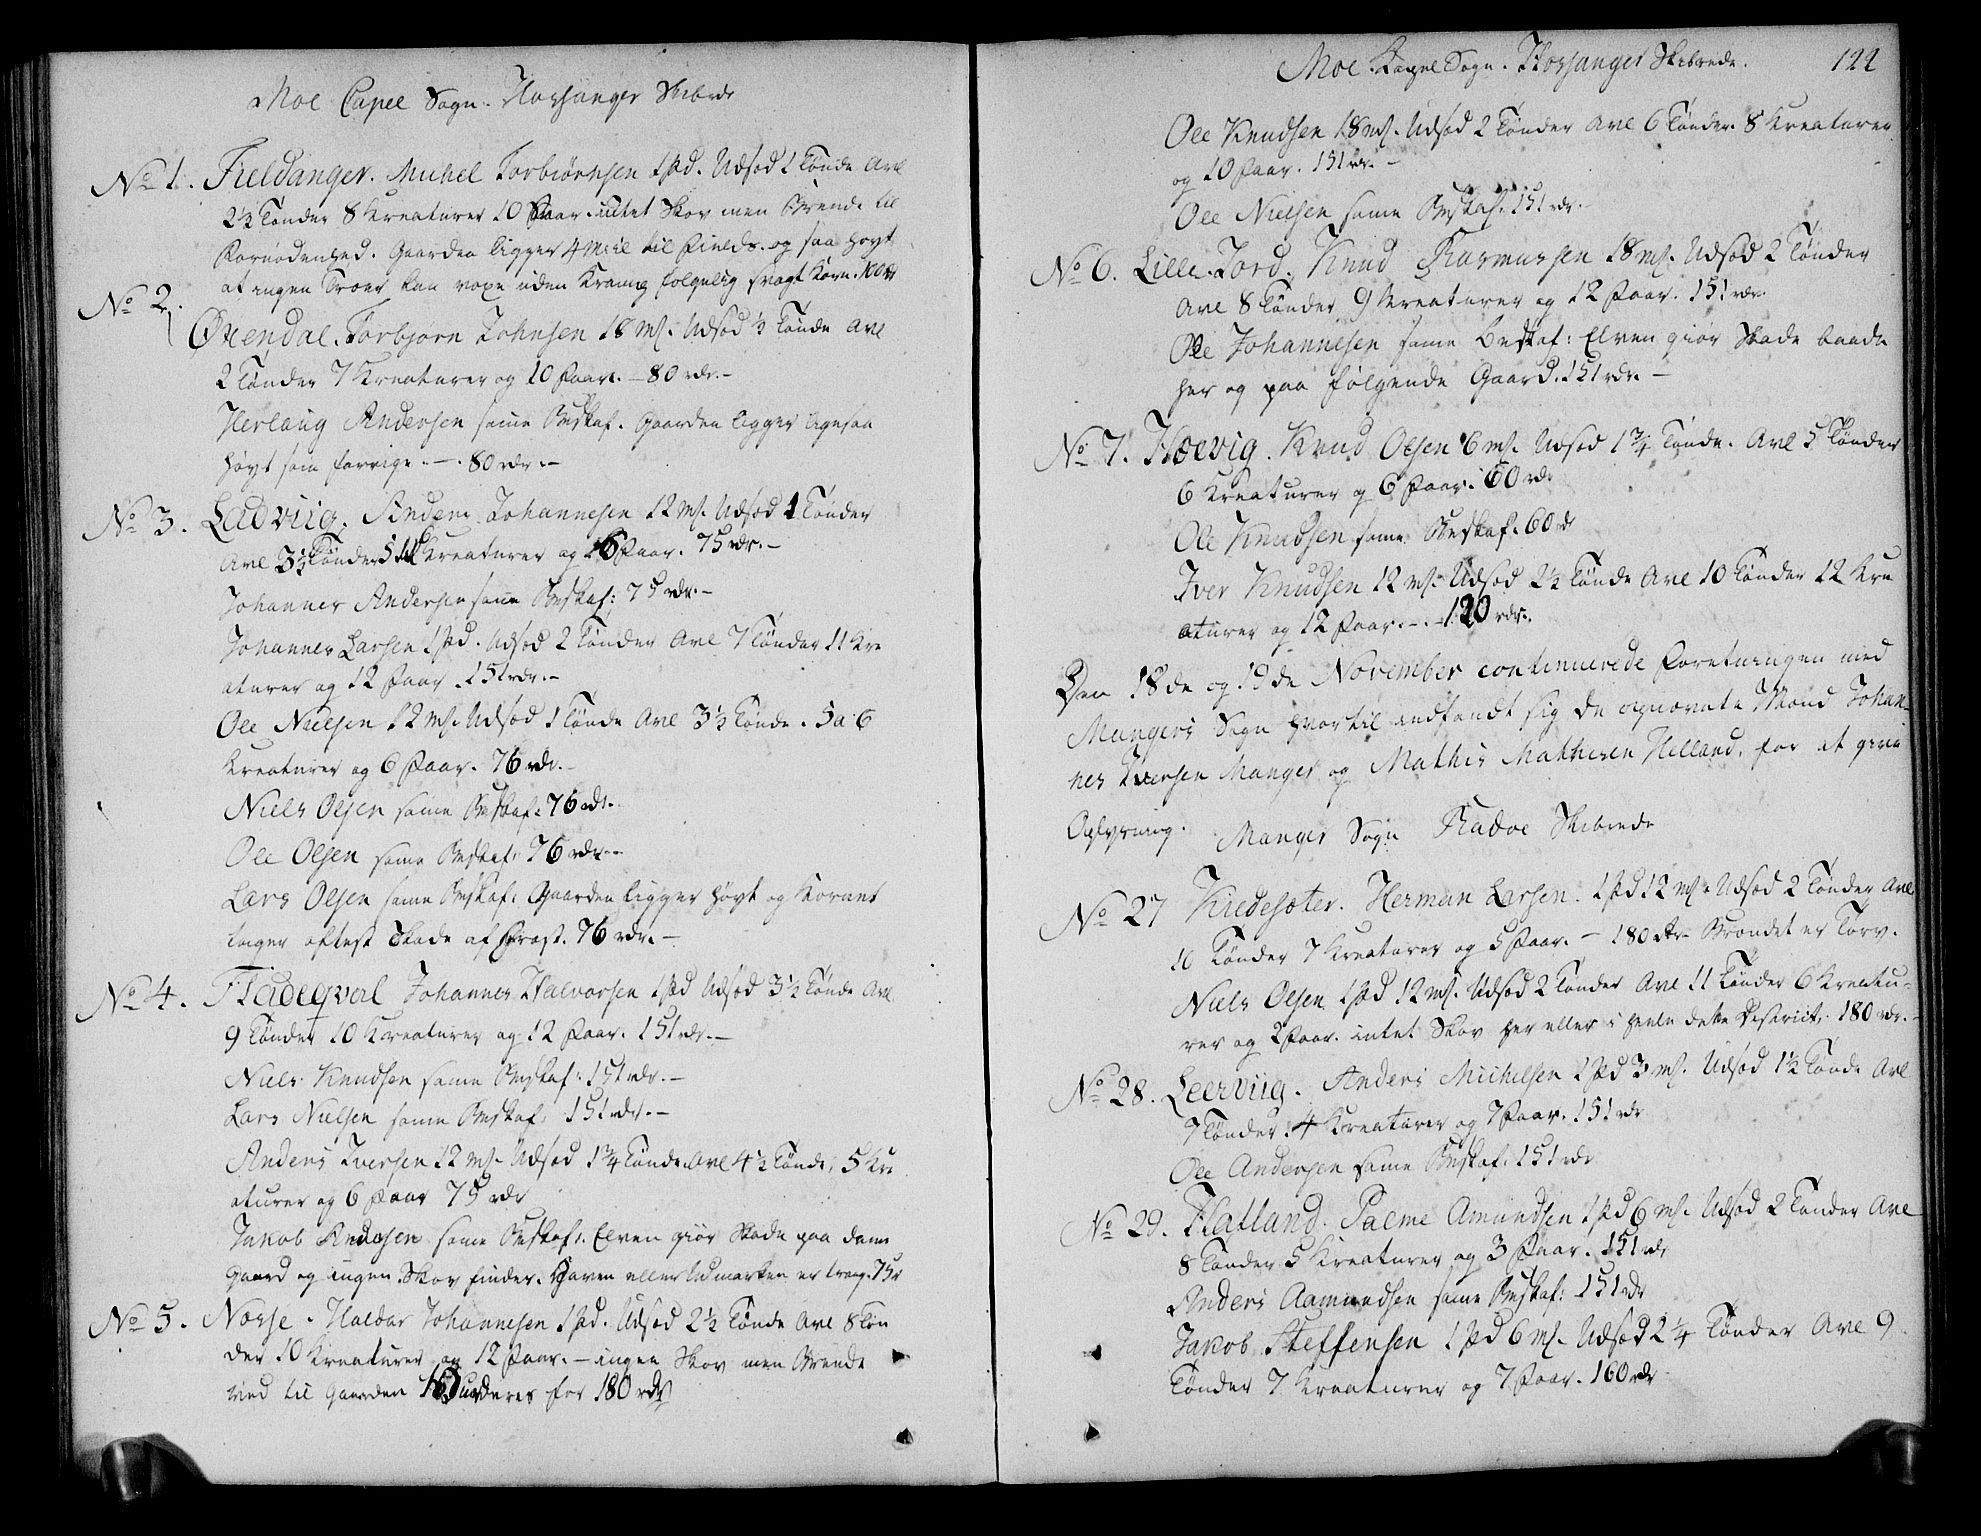 Moe Capel Sogn. Hosanger Skibrede
No 1. Fieldanger. Michel Torbiörnsen 1 pd. Udsød 1 Tønde Avl
2½ Tønder 8 Kreaturer 10 Faar. intet Skov men Brende til
Fornødenhed. Gaarden ligger 4 Miil til Fields. og saa høyt
at ingen Troer kan voxe uden Kraing følgelig svagt Korn. 100 rd
No 2. Oxendal. Torbjørn Johnsen 18 mk. Udsød ½ Tønde Avl
2 Tønder 7 Kreaturer og 10 Faar. — 80 rdr. —
Herlaug Andersen same Beskaf. Gaarden ligger ligesaa
høyt som forrige. — . 80 rdr. —
No 3. Ladviig. Anders Johannesen 12 mk. Udsød 1 Tønder
Avl 3½ Tønder 5 Kreaturer og 6 Faar. 75 rdr. —
Johannes Andersen same Beskaf: 75 rdr. —
Johannes Larsen 1 pd. Udsød 2 Tønder Avl 7 Tønder 11 Kre
aturer og 12 Faar . 151 rdr. —
Ole Nielsen 12 mk. Udsød 1 Tønde Avl 3½ Tønde . 5 a 6
Kreaturer og 6 Faar. 76 rdr. —
Niels Olsen same Beskaf. 76 rdr.
Ole Olsen same Beskaf: 76 rdr. —
Lars Olsen same Beskaf: Gaarden ligger høyt og Kornet
tager oftest Skade af Frost. 76 rdr. —
No 4. Fladeqval Johannes Halvorsen 1 pd Udsød 3½ Tønde Avl
9 Tønder 10 Kreaturer og 12 Faar. 151 rdr. —
Niels Knudsen same Beskaf: 151 rdr. —
Lars Nielsen same Beskaf: 151 rdr. —
Anders Iversen 12 mk. Udsød 1¾ Tønde Avl 4½ Tønde, 5 Kre
aturer og 6 Faar 75 rdr
Jakob same Beskaf: Elven giør Skade paa denne
Gaard og ingen Skov findes. Haven eller Udmarken er trang. 75 r
No 5. Nosse . Haldor Johannesen 1 pd. Udsød 2½ Tønde Avl 8 Tøn
der 10 Kreaturer og 12 Faar. — ingen Skov men Brende
ved til Gaarden vurderes for 180 rdr
Moe Kapel Sogn. Hosanger Skibrede. 122
Ole Knudsen 18 mk. Udsød 2 Tønder Avl 6 Tønder. 8 Kreaturer
og 10 Faar. 151 rdr. —
Ole Nielsen same Beskaf. 151 rdr. —
No 6. Lille-Tord. Knud Rasmussen 18 mk. Udsød 2 Tønder
Avl 8 Tønder 9 Kreaturer og 12 Faar. 151 rdr.
Ole Johannesen same Beskaf: Elven giør Skade baade
her og paa følgende Gaard. 151 rdr. —
No 7. Hoevig. Knud Olsen 6 mk. Udsød 1¾ Tønde. Avl 5 Tønder
6 Kreaturer og 6 Faar. 60 rdr
Ole Knudsen same Beskaf. 60 rdr
Iver Knudsen 12 mk. Udsød 2½ Tønde Avl 10 Tønder 12 Kre
aturer og 12 Faar. — . — 120 rdr.
Den 18de og 19de November continuerede Forretningen med
Mangers Sogn hvortil indfandt sig de opnævnte Mænd Johan-
nes Iversen Manger og Mathis Mathiesen Helland, for at give
Oplysning. Manger Sogn Radöe Skibrede
No 27 Kredesæter. Herman Larsen. 1 pd 12 mk. Udsød 2 Tønder Avl
10 Tønder 7 Kreaturer og 5 Faar. — 180 rdr Brendet er Torv.
Niels Olsen 1 pd 12 mk. Udsød 2 Tønder Avl 11 Tønder 6 Kreatu-
rer og 2 Faar. intet Skov her eller i heele dette District. 180 rdr. —
No 28. Leerviig. Anders Michelsen 1 pd 3 mk. Udsød 1½ Tønde Avl
7 Tønder. 4 Kreaturer og 7 Faar. 151 rdr
Ole Andersen same Beskaf: 151 rdr
No 29. Hatland. Palme Amundsen 1 pd 6 mk. Udsød 2 Tønder Avl
8 Tønder 5 Kreaturer og 3 Faar. 151 rdr
Anders Aamundsen same Beskaf: 151 rdr
Jakob Steffensen 1 pd 6 mk. Udsød 2¼ Tønder Avl 9
Tønder 7 Kreaturer og 7 Faar. 160 rdr